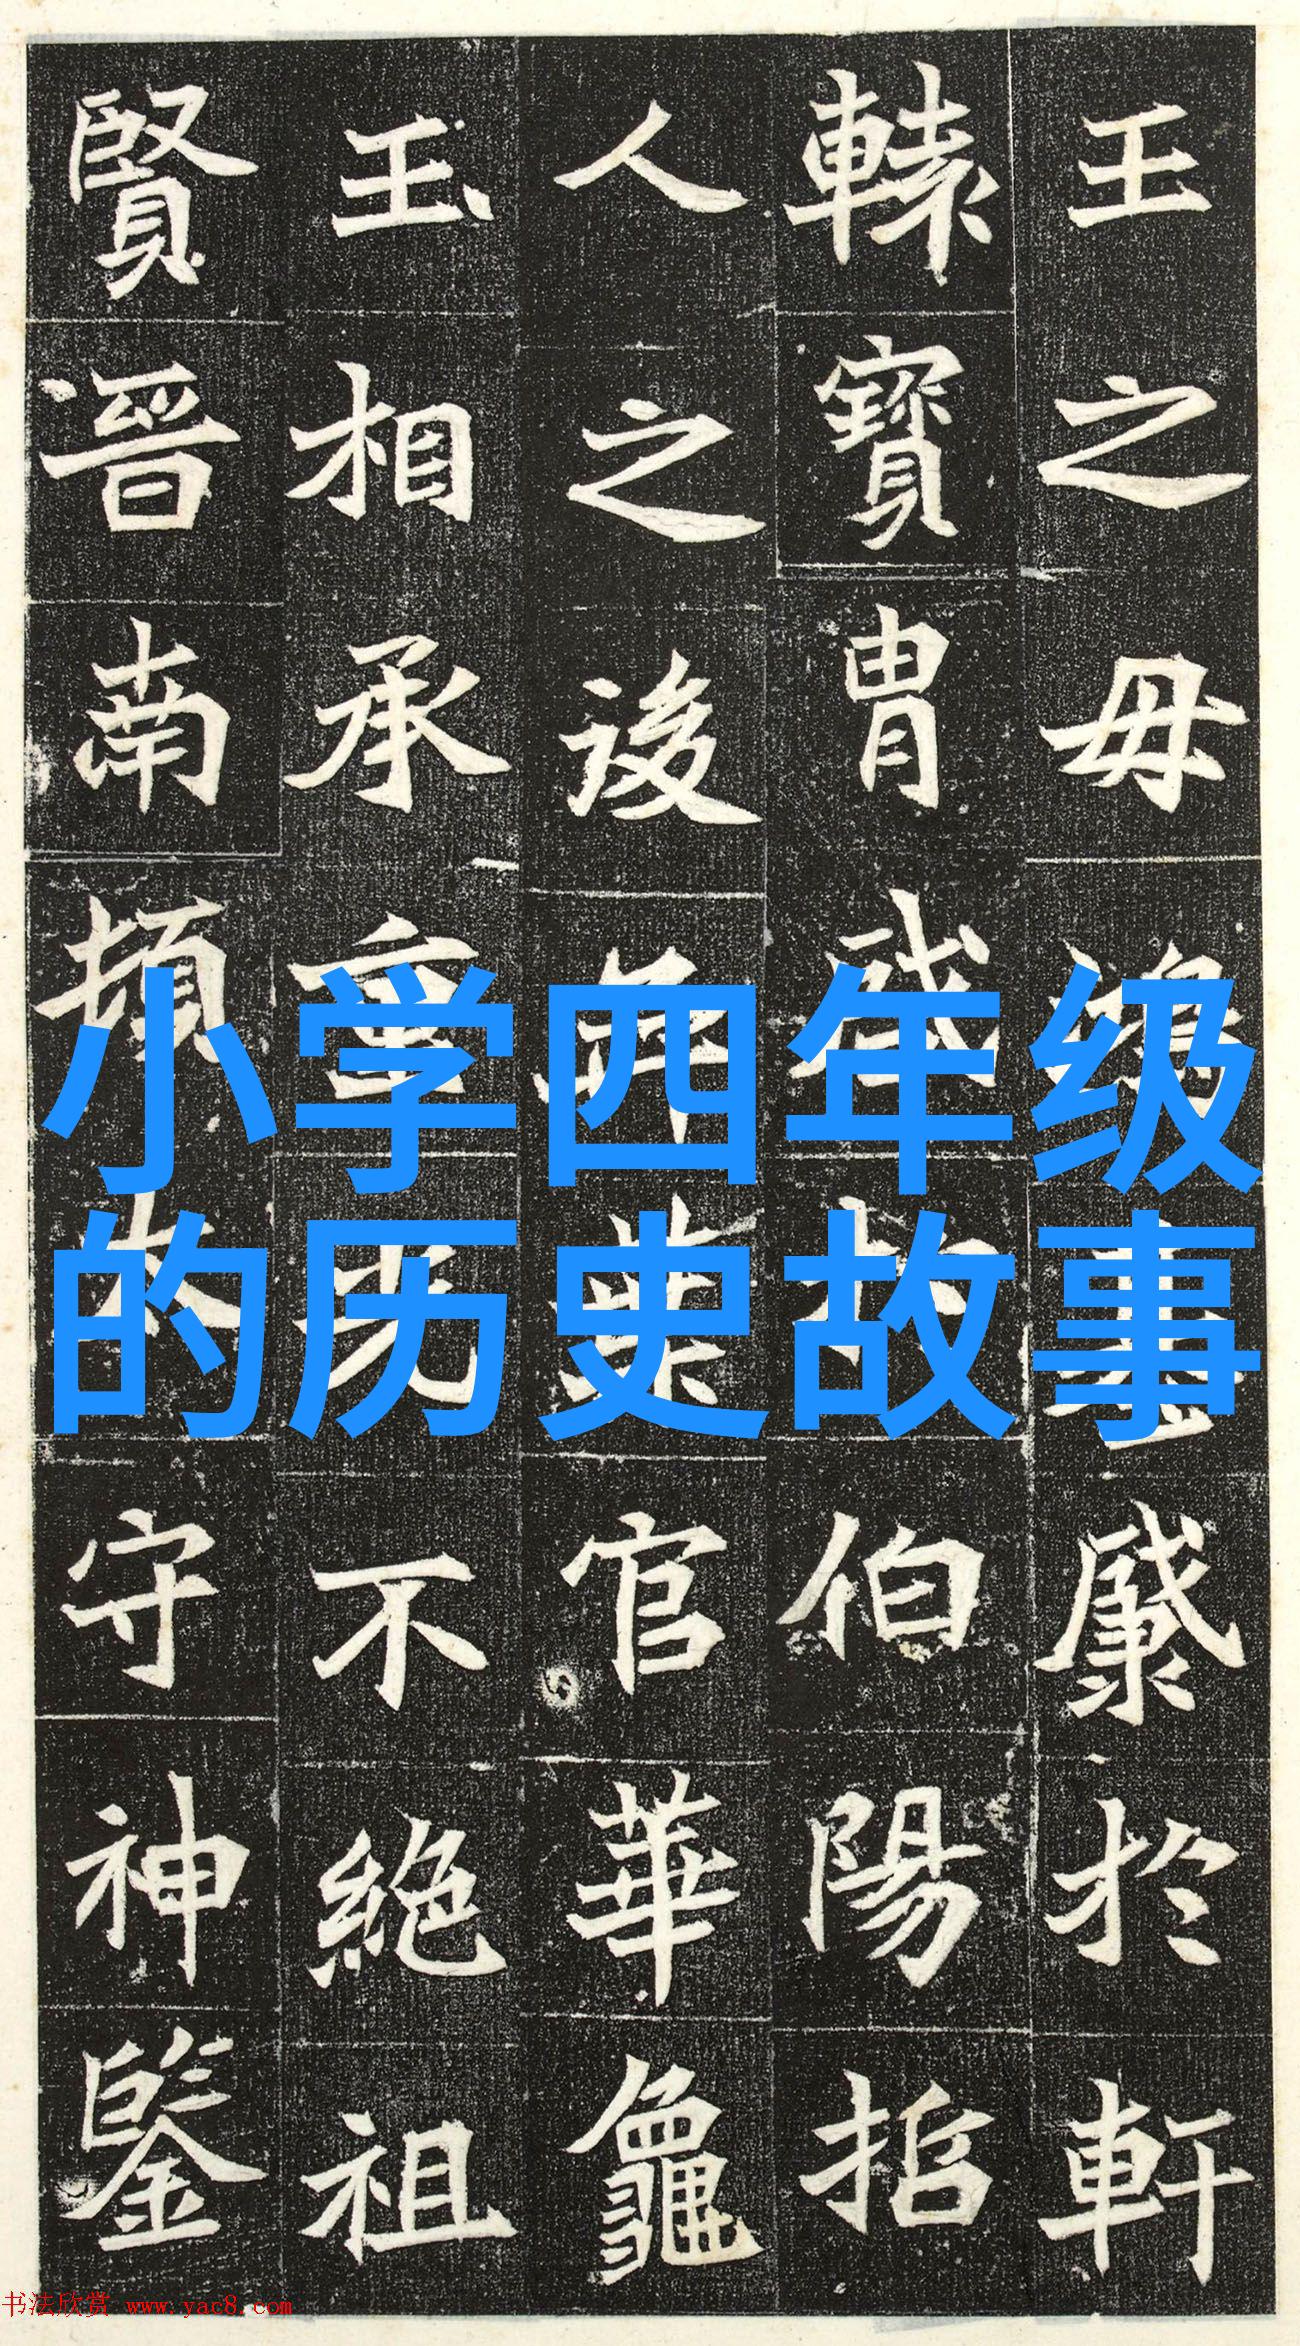 王之母於軒
轅寶胄伯陽
人之後官華龜
玉相承重光不絶祖
賢晉南頓太守神鑒
小学四年级
的历史故事
书法欣赏 www.yac8.com